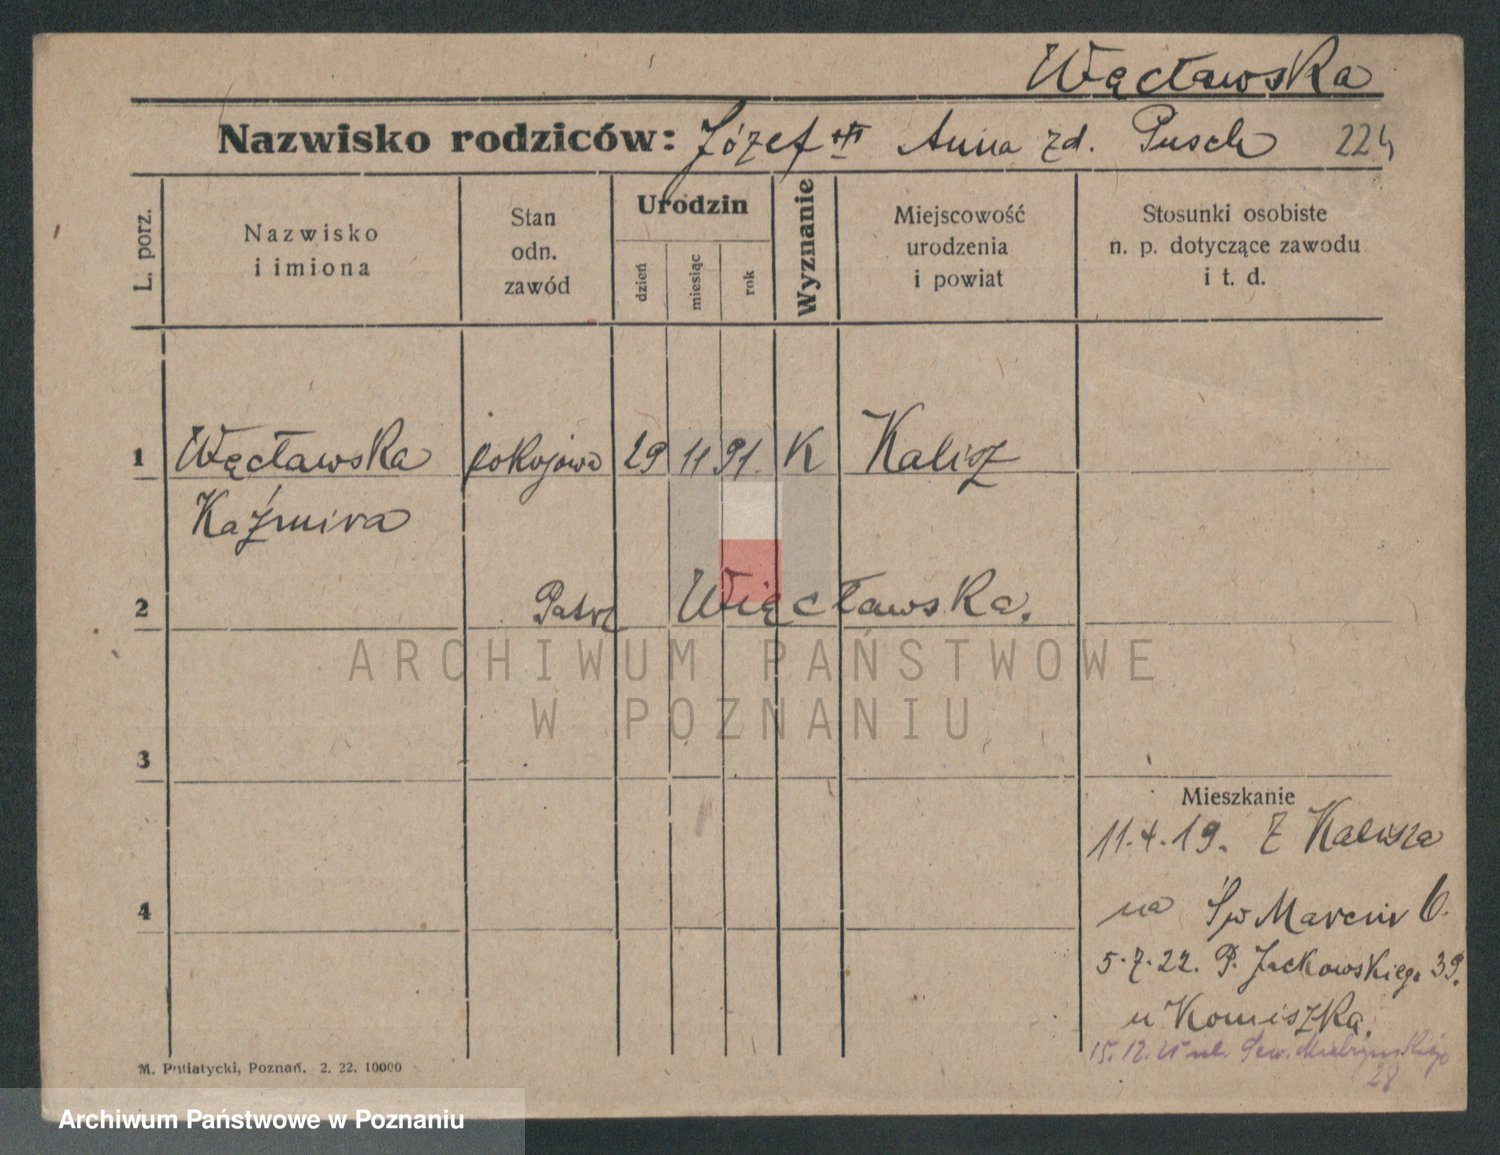 Węcławska
Nazwisko rodziców: Józef Anna zd. Pusch 224
L. porz.
Nazwisko
i imiona
Stan
odn.
zawód
Urodzin
dzień
miesiąc
rok
Wyznanie
Miejscowość
urodzenia
i powiat
Stosunki osobiste
n. p. dotyczące zawodu
i t. d.
1 Węcławska pokojowa 29 11 91. K Kalisz
Kaźmira
2 Patrz Więcławska.
ARCHIWUM PAŃSTWOWE
W POZNANIU
3
Mieszkanie
11.4.19. Z Kalisza
4 na Św Marcin 6.
5.7.22. P. Jackowskiego 39.
u Komiszka.
15.12.25 ul. Sew. Mielżyńskiego
28
M. Putiatycki, Poznań. 2. 22. 10000
Archiwum Państwowe w Poznaniu